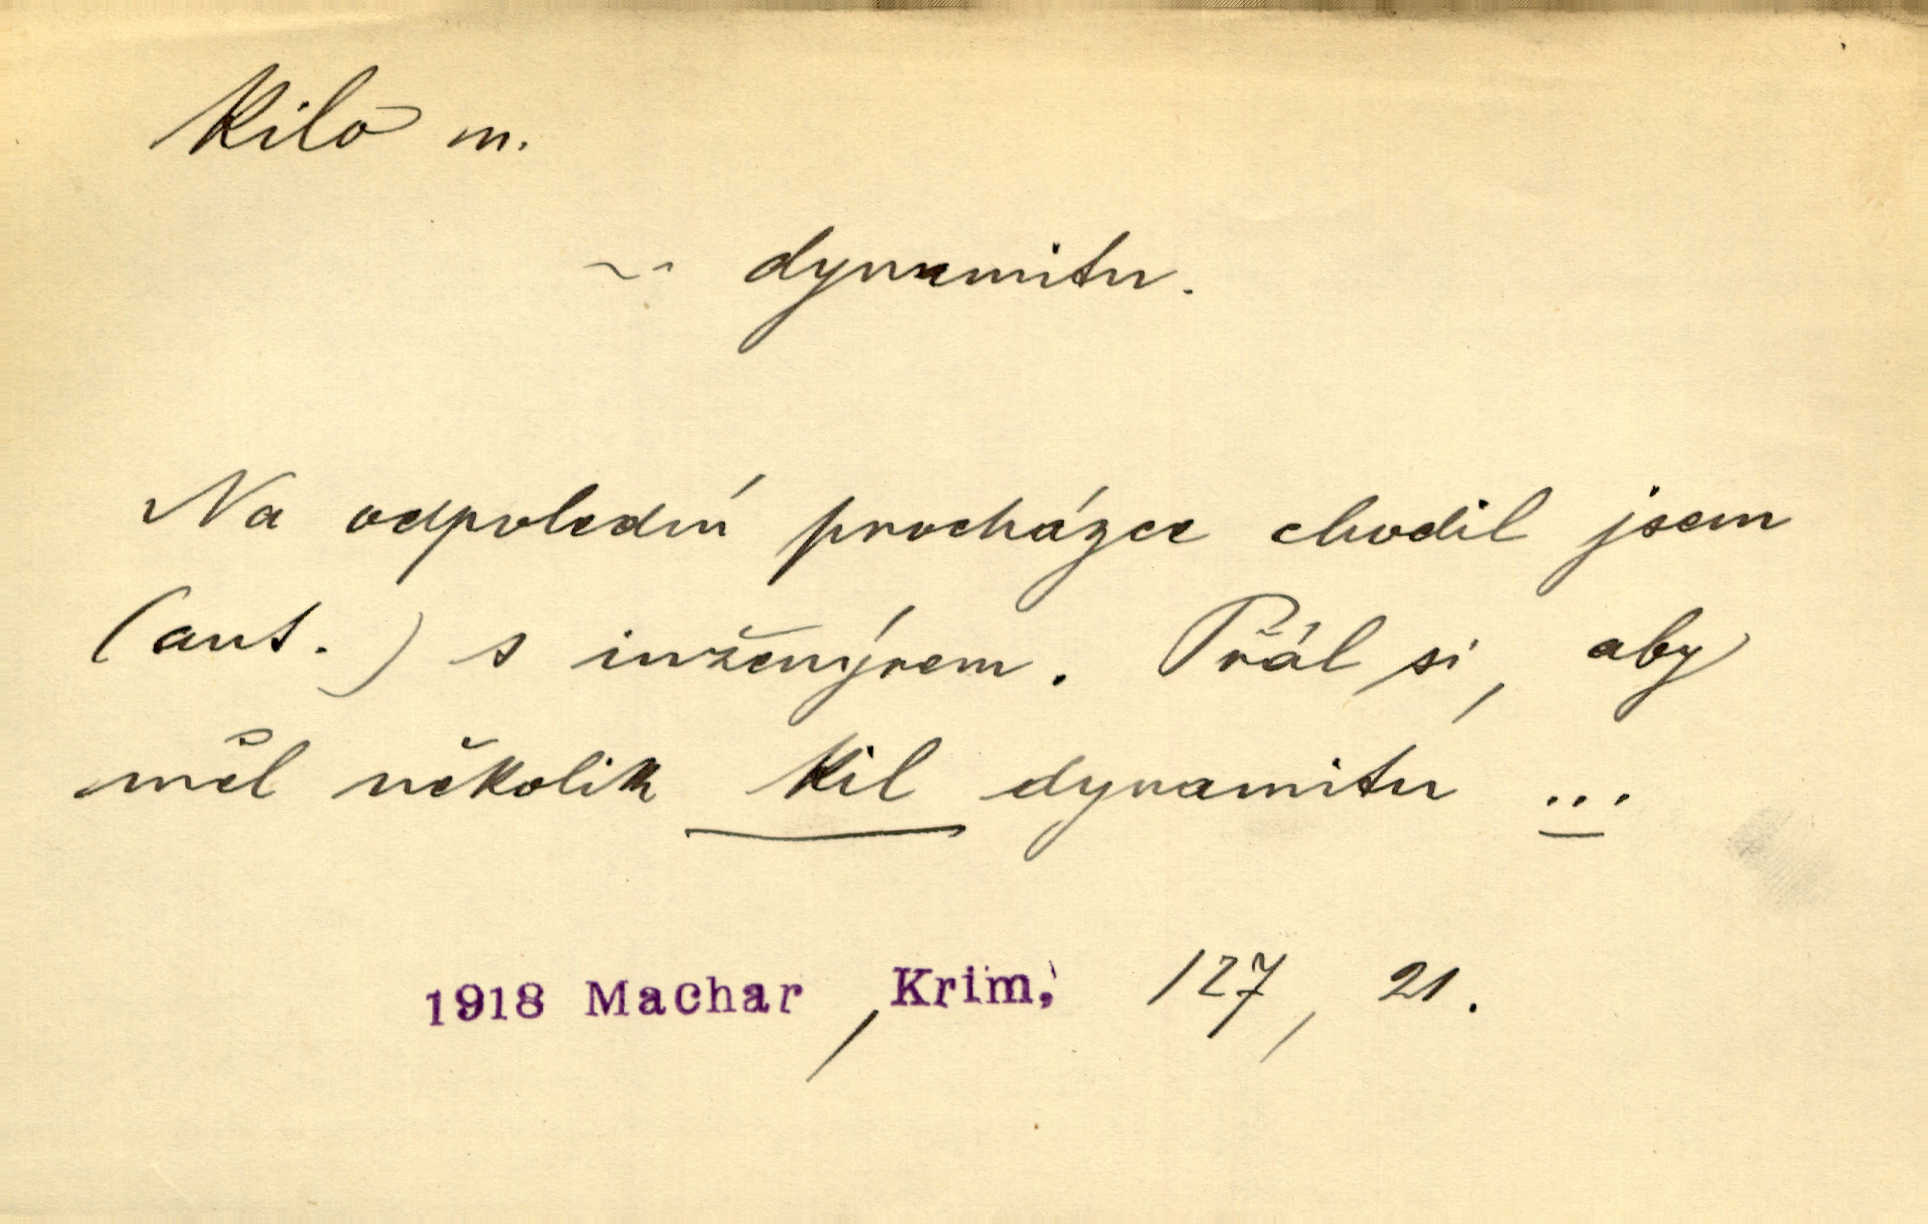 Kilo m.
~ dynamitu.
Na odpolední procházce chodil jsem
(aut.) s inženýrem. Přál si, aby
měl několik kil dynamitu ...
1918 Machar, Krim. 127, 21.